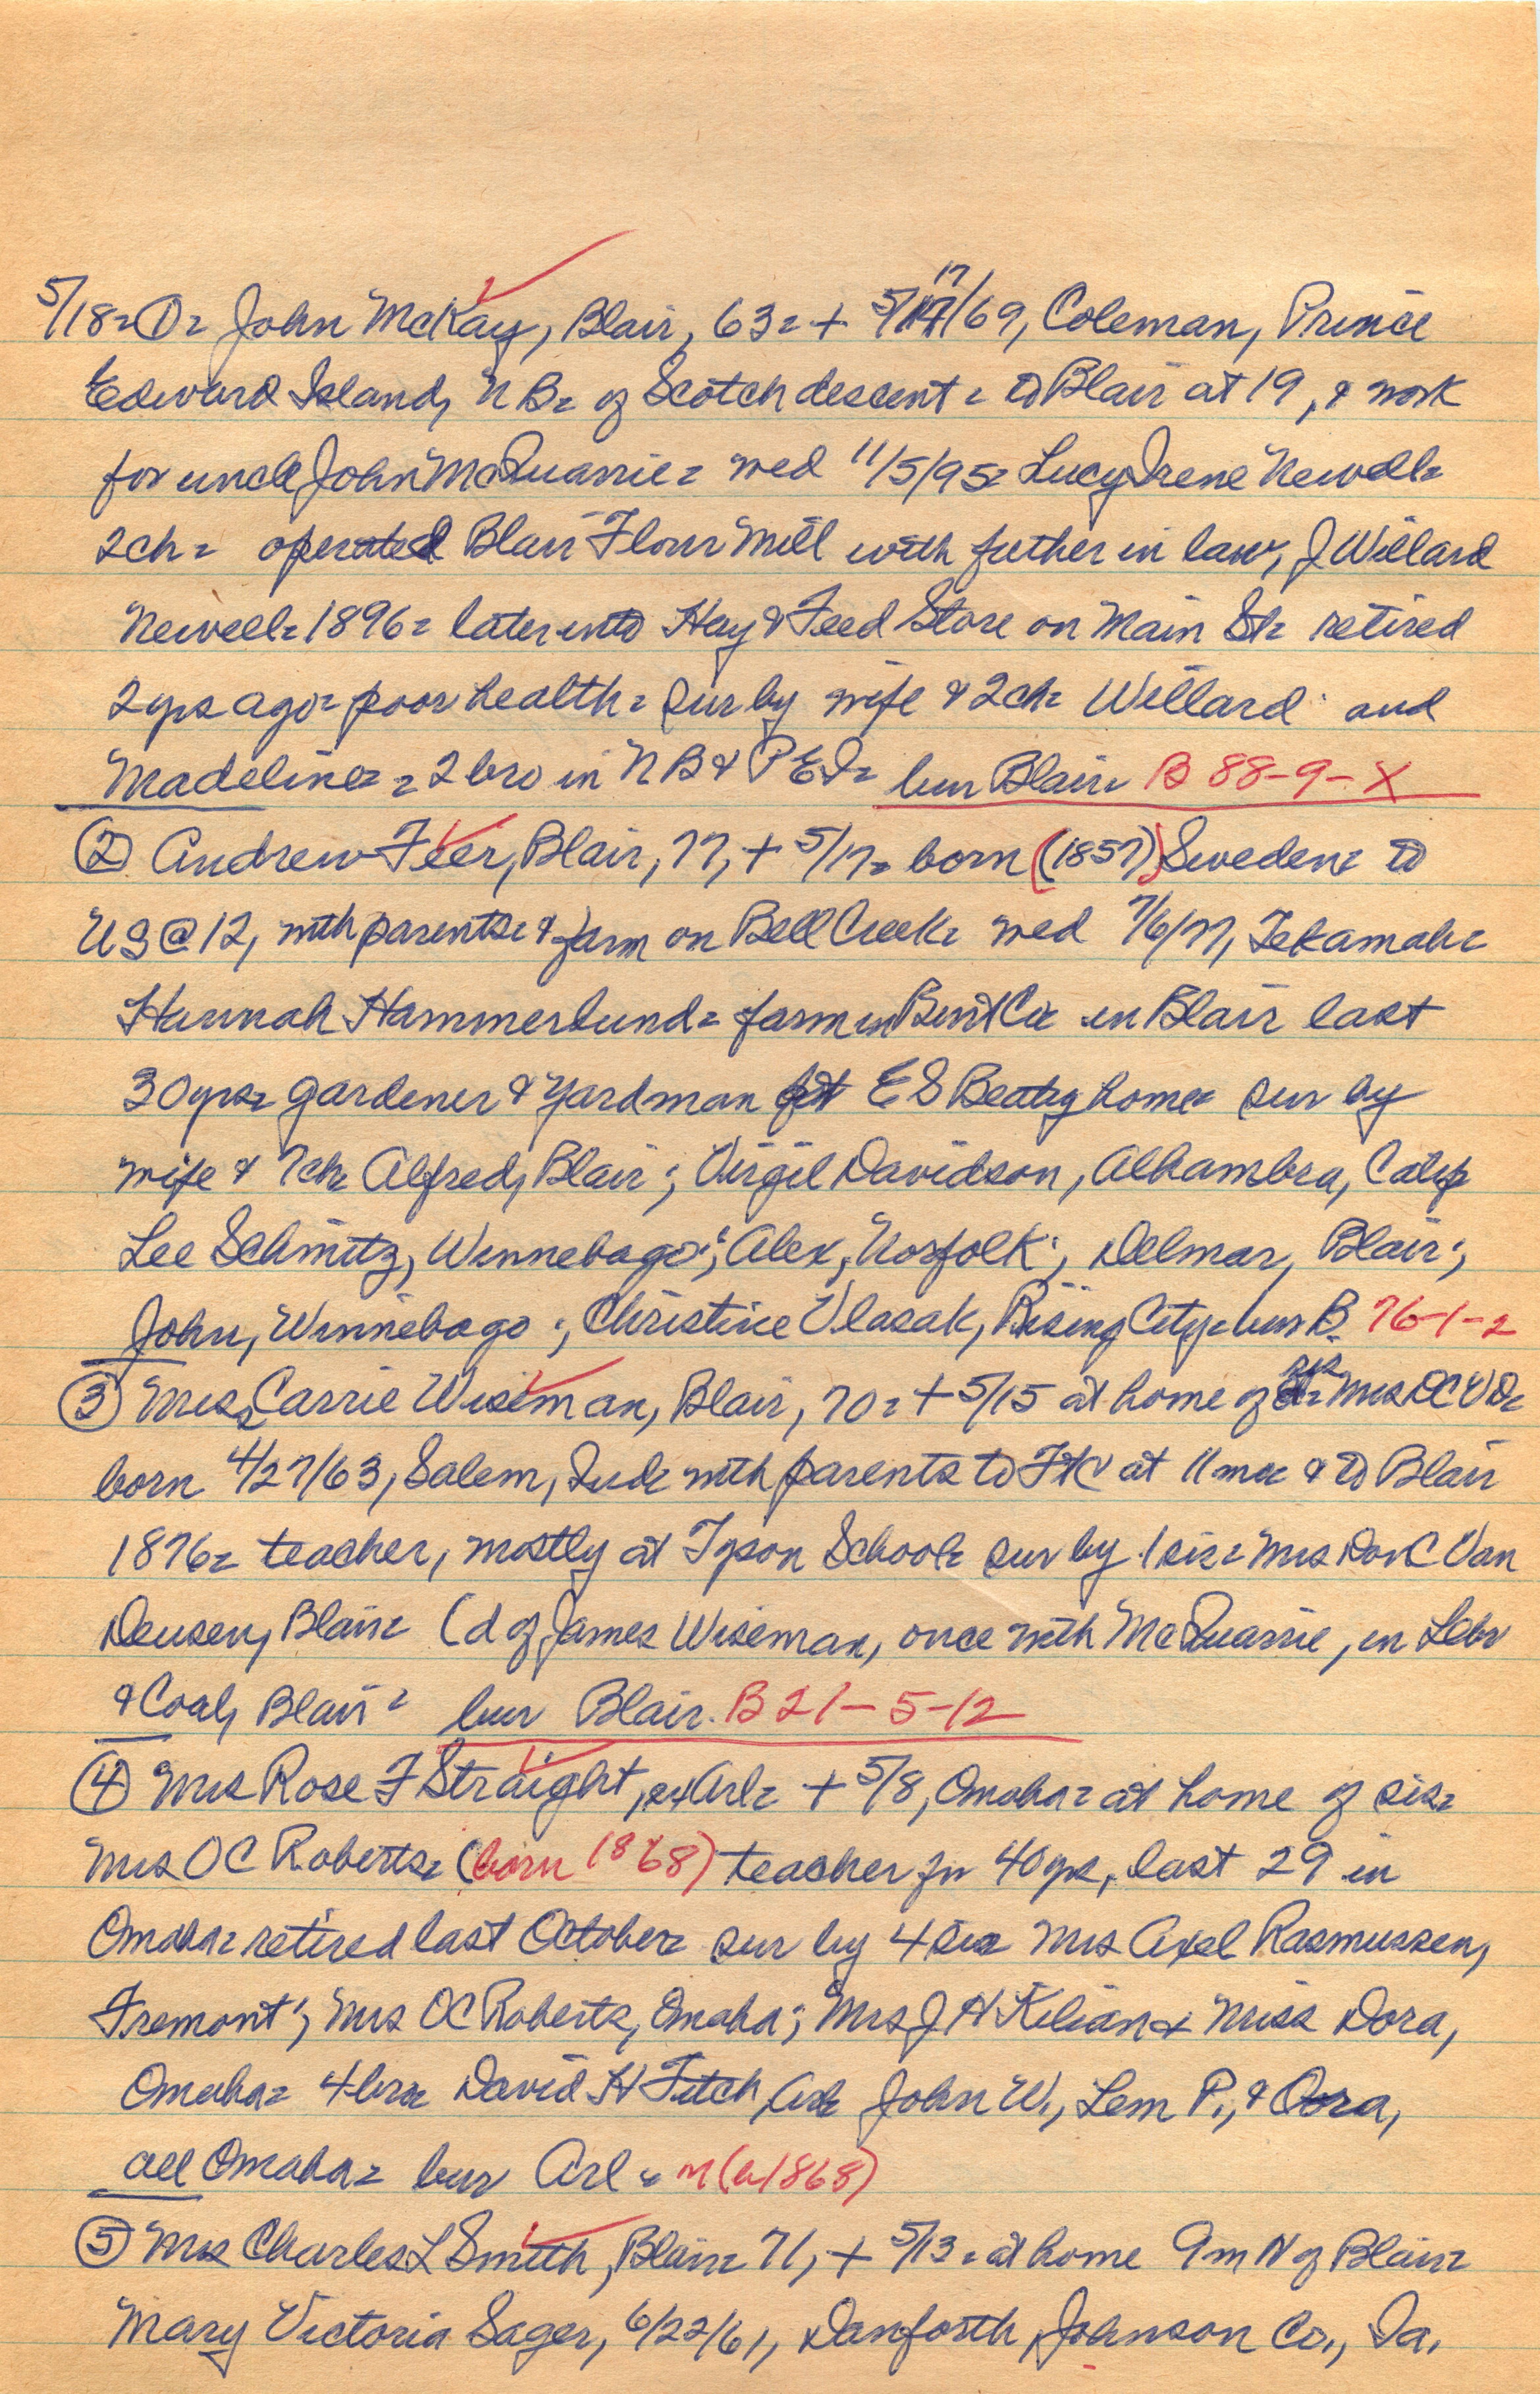 5/18 = ① = John McKay, Blair, 63 = + 5/17/69, Coleman, Prince
Edward Island, N B = of Scotch descent = to Blair at 19, & work
for uncle John McQuarrie = wed 11/5/95 = Lucy Irene Newell =
2 ch = operated Blair Flour Mill with father in law, J Willard
Newell = 1896 = later into Hay & Feed Store on Main St = retired
2 yrs ago = poor health = sur by wife & 2 ch = Willard and
Madeline = 2 bro in N B & P E I = bur Blair = B 88-9-X
② Andrew Feer, Blair, 77, + 5/17 = born (1857) Sweden = to
US @ 12, with parents = & farm on Bell Creek = wed 7/6/77, Tekamah =
Hannah Hammerlund = farm in Burt Co = in Blair last
30 yrs = gardener & yardman at E S Beaty home = sur by
wife & 7 ch = Alfred, Blair; Virgil Davidson, Alhambra, Calif
Lee Schmitz, Winnebago; Alex, Norfolk; Delmar, Blair;
John, Winnebago; Christine Vlasak, Rising City = bur B. 76-1-2
③ Miss Carrie Wiseman, Blair, 70 = + 5/15 at home of sis = Mrs DC VD =
born 4/27/63, Salem, Ind = with parents to Ft C at 11 mo = & to Blair
1876 = teacher, mostly at Tyson School = sur by 1 sis = Mrs Don C Van
Deusen, Blair = (d of James Wiseman, once with McQuarrie, in Lbr
& Coal, Blair = bur Blair. B 21-5-12
④ Mrs Rose F Straight, ex Arl = + 5/8, Omaha = at home of sis =
Mrs O C Roberts = (born 1868) teacher for 40 yrs, last 29 in
Omaha = retired last October = sur by 4 sis = Mrs Axel Rasmussen,
Fremont; Mrs OC Roberts, Omaha; Mrs J H Kilian & Miss Dora,
Omaha = 4 bro = David H Fitch, Arl = John W., Lem P., & Ora,
all Omaha = bur Arl = M (b 1868)
⑤ Mrs Charles L Smith, Blair = 71, + 5/13 = at home 9 m N of Blair =
Mary Victoria Sager, 6/22/61, Danforth, Johnson Co., Ia.